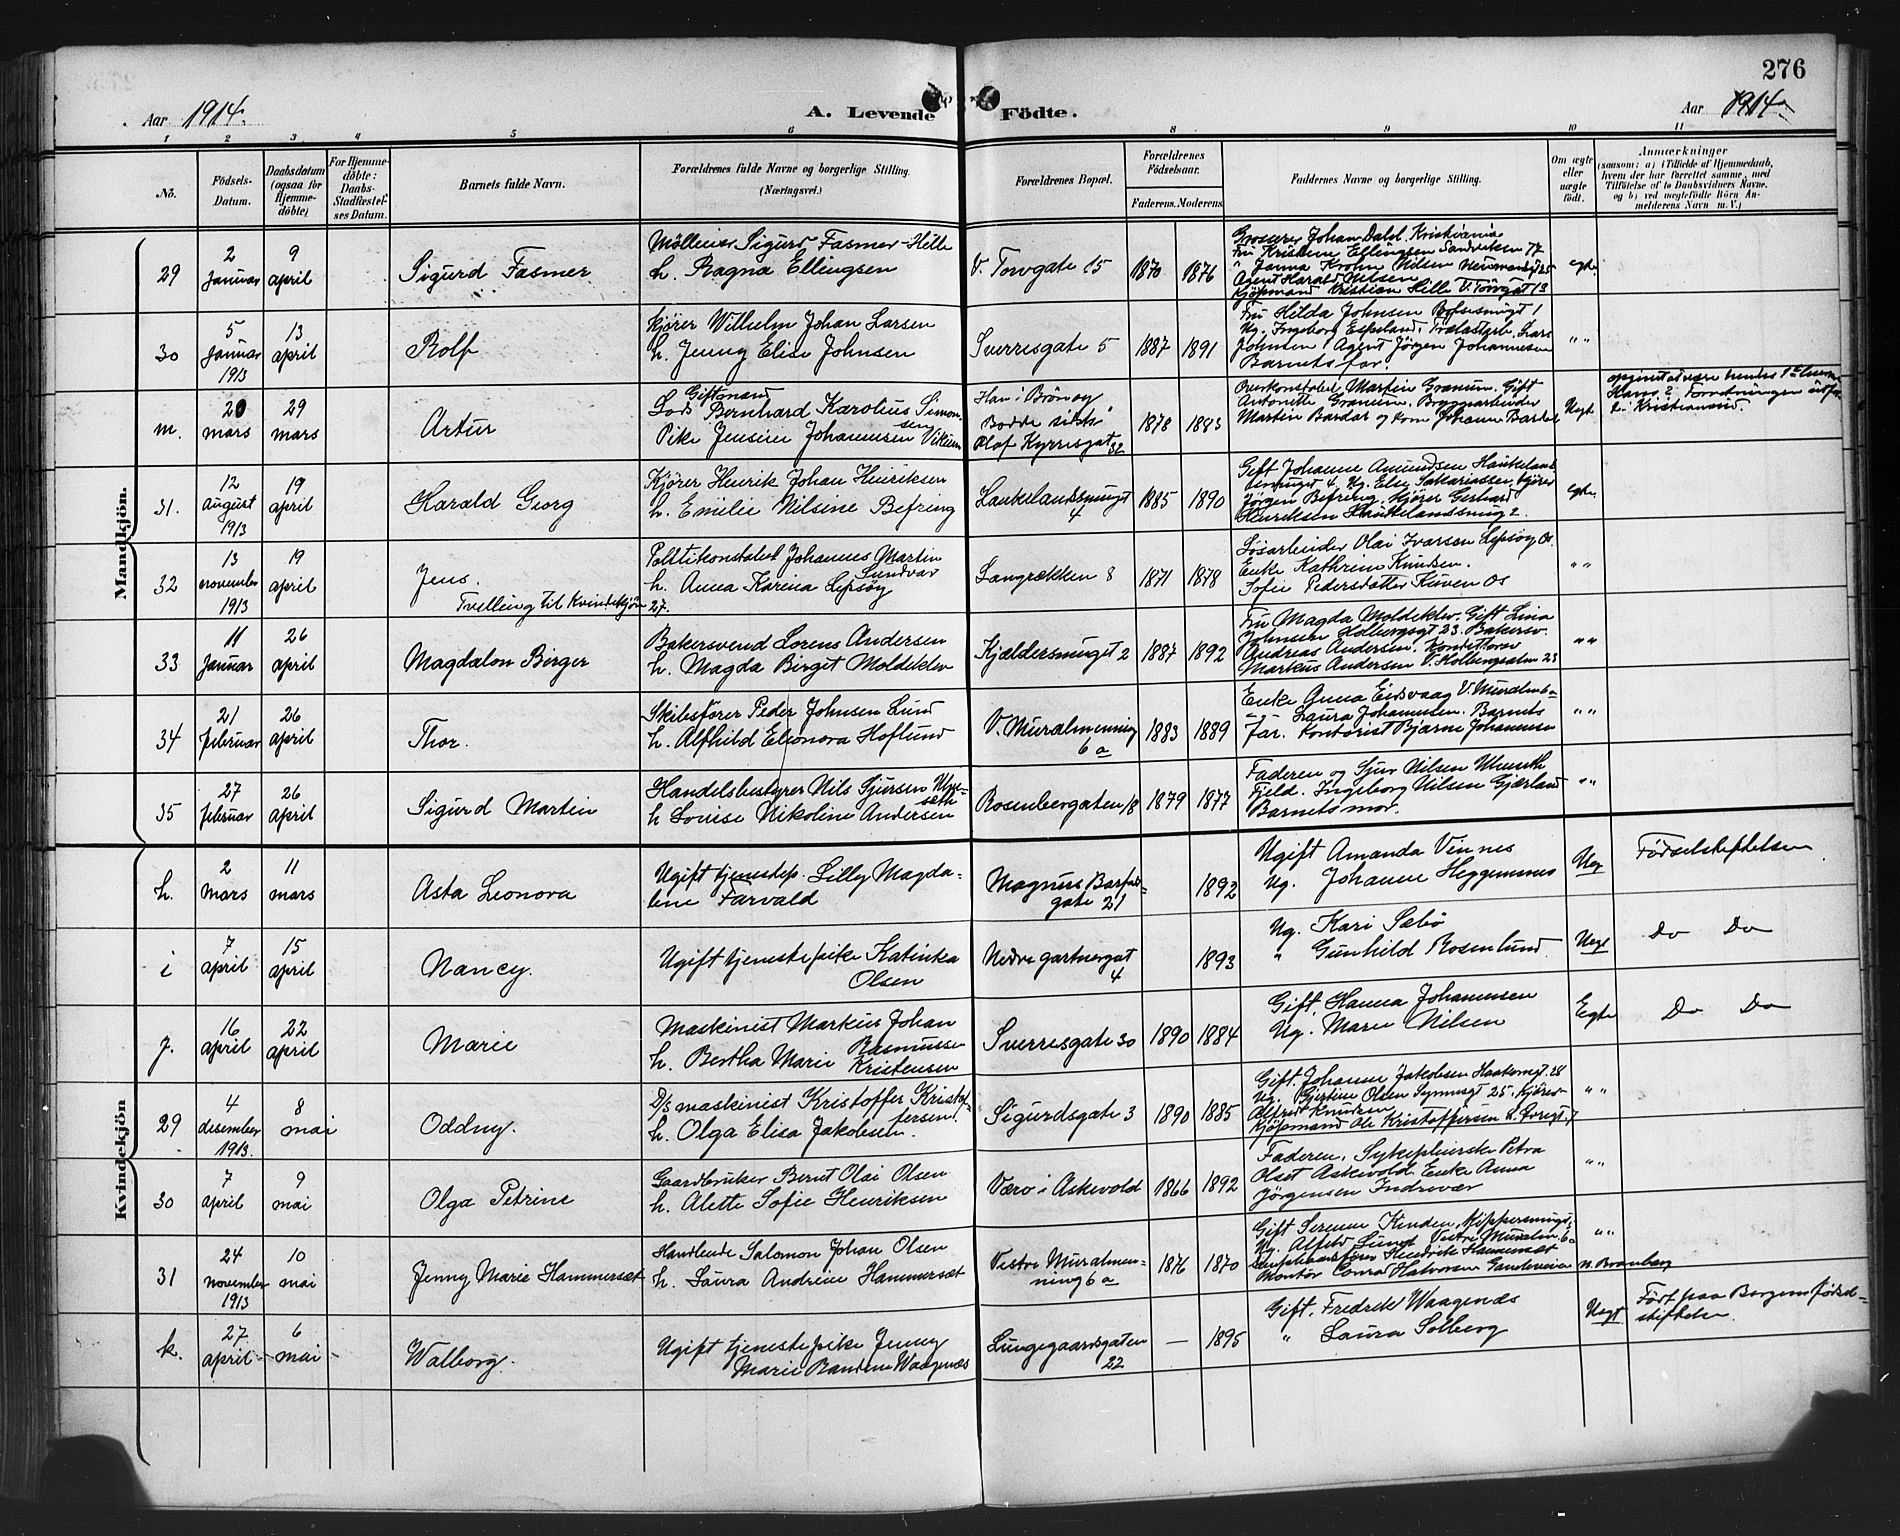 276
Aar 1914.
A. Levende Födte.
Aar 1914
1 2 3 4 5 6 8 9 10 11
No.
Födsels-Datum.
Daabsdatum (ogsaa for Hjemme-döbte)
For Hjemme-döbte: Daabs-Stadfæstel-ses Datum.
Barnets fulde Navn.
Forældrenes fulde Navne og borgerlige Stilling. (Næringsvei.)
Forældrenes Bopæl.
Forældrenes Födselsaar.
Faderens. Moderens
Faddernes Navne og borgerlige Stilling.
Om ægte eller uægte födt.
Anmærkninger
(saasom: a) i Tilfælde af Hjemmedaab,
hvem der har forrettet samme, med
Tilföielse af to Daabsvidners Navne,
og b) ved uægtefödte Börn An-
melderens Navn m. V.)
Mandkjön.
29
2 Januar
9 april
Sigurd Fasmer
Sigurd Fasmer Hille
h. Ragna Ellingsen
V. Torvgate 15
1870 1876
Grosserer Johan Dahl, Kristiania
Fru Kristine Ellingsen Sandviken 77
" Janna Krohn Nilsen
Agent Harald Nilsen
Kjöpmand Kristian Hille V. Torvgt 13
egte
30
5 Januar 1913
13 april
Rolf
Kjörer Wilhelm Johan Larsen
h. Jenny Elise Johnsen
Sverresgate 5
1887 1891
Fru Hilda Johnsen
Ug. Ingeborg Espeland, Lars
Johnsen Agent Jörgen Johannesen
Barnets far.
" "
m.
20 mars
29 mars
Artur
Giftmand
Bernhard Karolius Simon-
sen
Pike Jensine Johannesen
Han i Brönöy
Olaf Kyrresgat 32
1878 1883
Overkonstabel Martin Granum. Gift
Antonette Granum. Bryggearbeider
Martin Bardar og Johanne
Uegt
Kristiansund.
31.
12 August 1913
19 april
Harald Georg
Kjörer Henrik Johan Henriksen
h. Emilie Nilsine Befring
Haukelandssmuget 4
1885 1890
Gift Johanne Amundsen Haukelands
smuget 4, Ug. Elise Sakariassen, Kjörer
Jörgen Befring, Kjörer Gerhard
Henriksen Haukelandssmug 2.
egte.
32
13 november 1913
19 april
Jens.
Tvelling til Kvindekjön 27.
Politikonstabel Johannes Martin
Sundvor
h. Anna Karina Lepsöy
Langrækken 8
1871 1878
Lösarbeider Olai Ivarsen Lepsöy Os.
Enke Kathrine Knudsen.
Sofie Pedersdatter Kuven Os
" "
33
11 Januar
26 april
Magdalon Birger
Bakersvend Lorens Andersen
h. Magda Birgit Moldeklev
Kjældersmuget 2
1887 1892
Fru Magda Moldeklev. Gift Lina
Johnsen Holbergsgt 23. Bakersv.
Andreas Andersen, Konditorsv
Markus Andersen V. Holbergsalm 23
" "
34
21 februar
26 april
Thor.
Skibsförer Peder Johnsen Lund
h. Alfhild Eleonora Hoflund
V. Muralmenning 6a
1883 1889
Enke Gunna Eidsvaag V. Muralm 6a
Laura Johannesen. Barnets
far. Kontorist Bjarne Johannesen
" "
35
27 februar
26 april
Sigurd Martin
Handelsbestyrer Nils Sjursen
h Louise Nikoline Andersen
Rosenbergsgaten 18
1879 1877
Faderen og Sjur Nilsen
Fjeld. Ingeborg Nilsen Gjærland
Barnets mor.
" "
Kvindekjön
h.
2 mars
11 mars
Asta Leonora
Ugift tjenestep. Lilly Magda-
lene Farvald
Magnus Barfods-
gate 21
1892
Ugift Amanda Vinnes
Ug. Johanne Heggernnes
Ueg
Födselstiftelsen
i
7 april
15 april
Nancy.
Ugift tjenestepike Katinka
Olsen
Nedre gartnergat 4
1893
Ug. Kari Sæbö
" Gunhild Rosenlund
Uegt
Do Do
j.
16 april
22 april
Marie
Maskinist Markus Johan
Rasmussen
h. Bertha Marie Kristensen
Sverresgate 30
1890 1884
Gift. Hanna Johannesen
Ug. Marie Nilsen
Egte
Do Do
29
4 desember 1913.
8 mai
Oddny.
D/s maskinist Kristoffer Kristof-
fersen.
h. Olga Elisa Jakobsen.
Sigurdsgate 3
1890 1885
Gift. Johanne Jakobsen Haakonsgt. 28
Ug. Gjertine Olsen 25, Kjöresv
Alfred Knudsen
Kjöpmand Ole Kristoffersen
" "
30
7 april
9 mai
Olga Petrine
Gaardbruker Bernt Olai Olsen
h. Alette Sofie Henriksen
Værö i Askevold
1866 1892
Faderen, Sykepleierske Petra
Olset Askevold. Enke Anna
Jörgensen Indrevær
" "
31
24 november 1913
10 mai
Jenny Marie Hammersæt
Handlende Salomon Johan Olsen
h. Laura Andrine Hammersæt
Vestre Muralmen-
ning 6a
1876 1870
Gift Serene Kinden, Klippersmug
Ug. Alfild Lund Vestre Muralm. 6a
Hendrik Hammersæt
Montör Conrad Halvorsen
" "
k.
27 april -
6 mai -
Walborg.
Ugift tjenestepike Jenny
Marie Randine Waagenæs
Lungegaardsgaten 22
— 1895
Gift. Fredrik Waagenæs
" Laura Solberg
Uegt
Födt paa Bergens födsels-
stiftelse